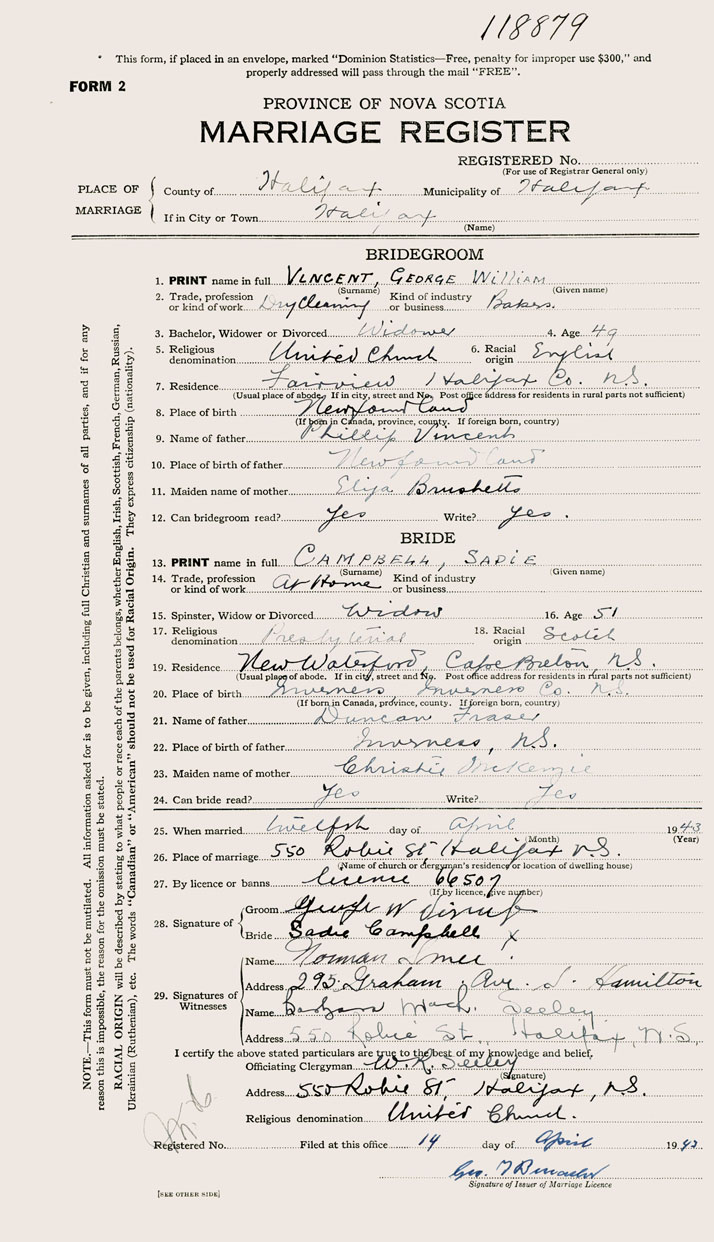 118879
* This form, if placed in an envelope, marked "Dominion Statistics—Free, penalty for improper use $300," and
properly addressed will pass through the mail "FREE".
FORM 2
PROVINCE OF NOVA SCOTIA
MARRIAGE REGISTER
REGISTERED No.
(For use of Registrar General only)
PLACE OF MARRIAGE
County of Halifax Municipality of Halifax
If in City or Town Halifax
(Name)
BRIDEGROOM
1. PRINT name in full VINCENT, GEORGE William
(Surname) (Given name)
2. Trade, profession or kind of work Dry Cleaning Kind of industry or business Bakers.
3. Bachelor, Widower or Divorced Widower 4. Age 49
5. Religious denomination United Church 6. Racial origin English
7. Residence Fairview Halifax Co. N.S.
(Usual place of abode. If in city, street and No. Post office address for residents in rural parts not sufficient)
8. Place of birth Newfoundland
(If born in Canada, province, county. If foreign born, country)
9. Name of father Phillip Vincent
10. Place of birth of father Newfoundland
11. Maiden name of mother Eliza Brushett
12. Can bridegroom read? Yes Write? Yes.
BRIDE
13. PRINT name in full CAMPBELL, SADIE
(Surname) (Given name)
14. Trade, profession or kind of work At Home Kind of industry or business
15. Spinster, Widow or Divorced Widow 16. Age 51
17. Religious denomination Presbyterial 18. Racial origin Scotch
19. Residence New Waterford, Cape Breton, N.S.
(Usual place of abode. If in city, street and No. Post office address for residents in rural parts not sufficient)
20. Place of birth Inverness, Inverness Co. N.S.
(If born in Canada, province, county. If foreign born, country)
21. Name of father Duncan Fraser
22. Place of birth of father Inverness, N.S.
23. Maiden name of mother Christie McKenzie
24. Can bride read? Yes Write? Yes
25. When married twelfth day of April 1943
(Month) (Year)
26. Place of marriage 550 Robie St, Halifax N.S.
(Name of church or clergyman's residence or location of dwelling house)
27. By licence or banns licence 66507
(If by licence, give number)
28. Signature of
Groom George W Vincent
Bride Sadie Campbell X
29. Signatures of Witnesses
Name Norman
Address 295 Graham Ave. S. Hamilton
Name Barbara Mach. Seeley
Address 550 Robie St., Halifax, N.S.
I certify the above stated particulars are true to the best of my knowledge and belief,
Officiating Clergyman W. R. Seeley
(Signature)
Address 550 Robie St, Halifax, N.S.
Religious denomination United Church.
Registered No. Filed at this office 14 day of April 1943
Geo.
Signature of Issuer of Marriage Licence
[SEE OTHER SIDE]
NOTE.—This form must not be mutilated. All information asked for is to be given, including full Christian and surnames of all parties, and if for any
reason this is impossible, the reason for the omission must be stated.
RACIAL ORIGIN will be described by stating to what people or race each of the parents belongs, whether English, Irish, Scottish, French, German, Russian,
Ukrainian (Ruthenian), etc. The words "Canadian" or "American" should not be used for Racial Origin. They express citizenship (nationality).